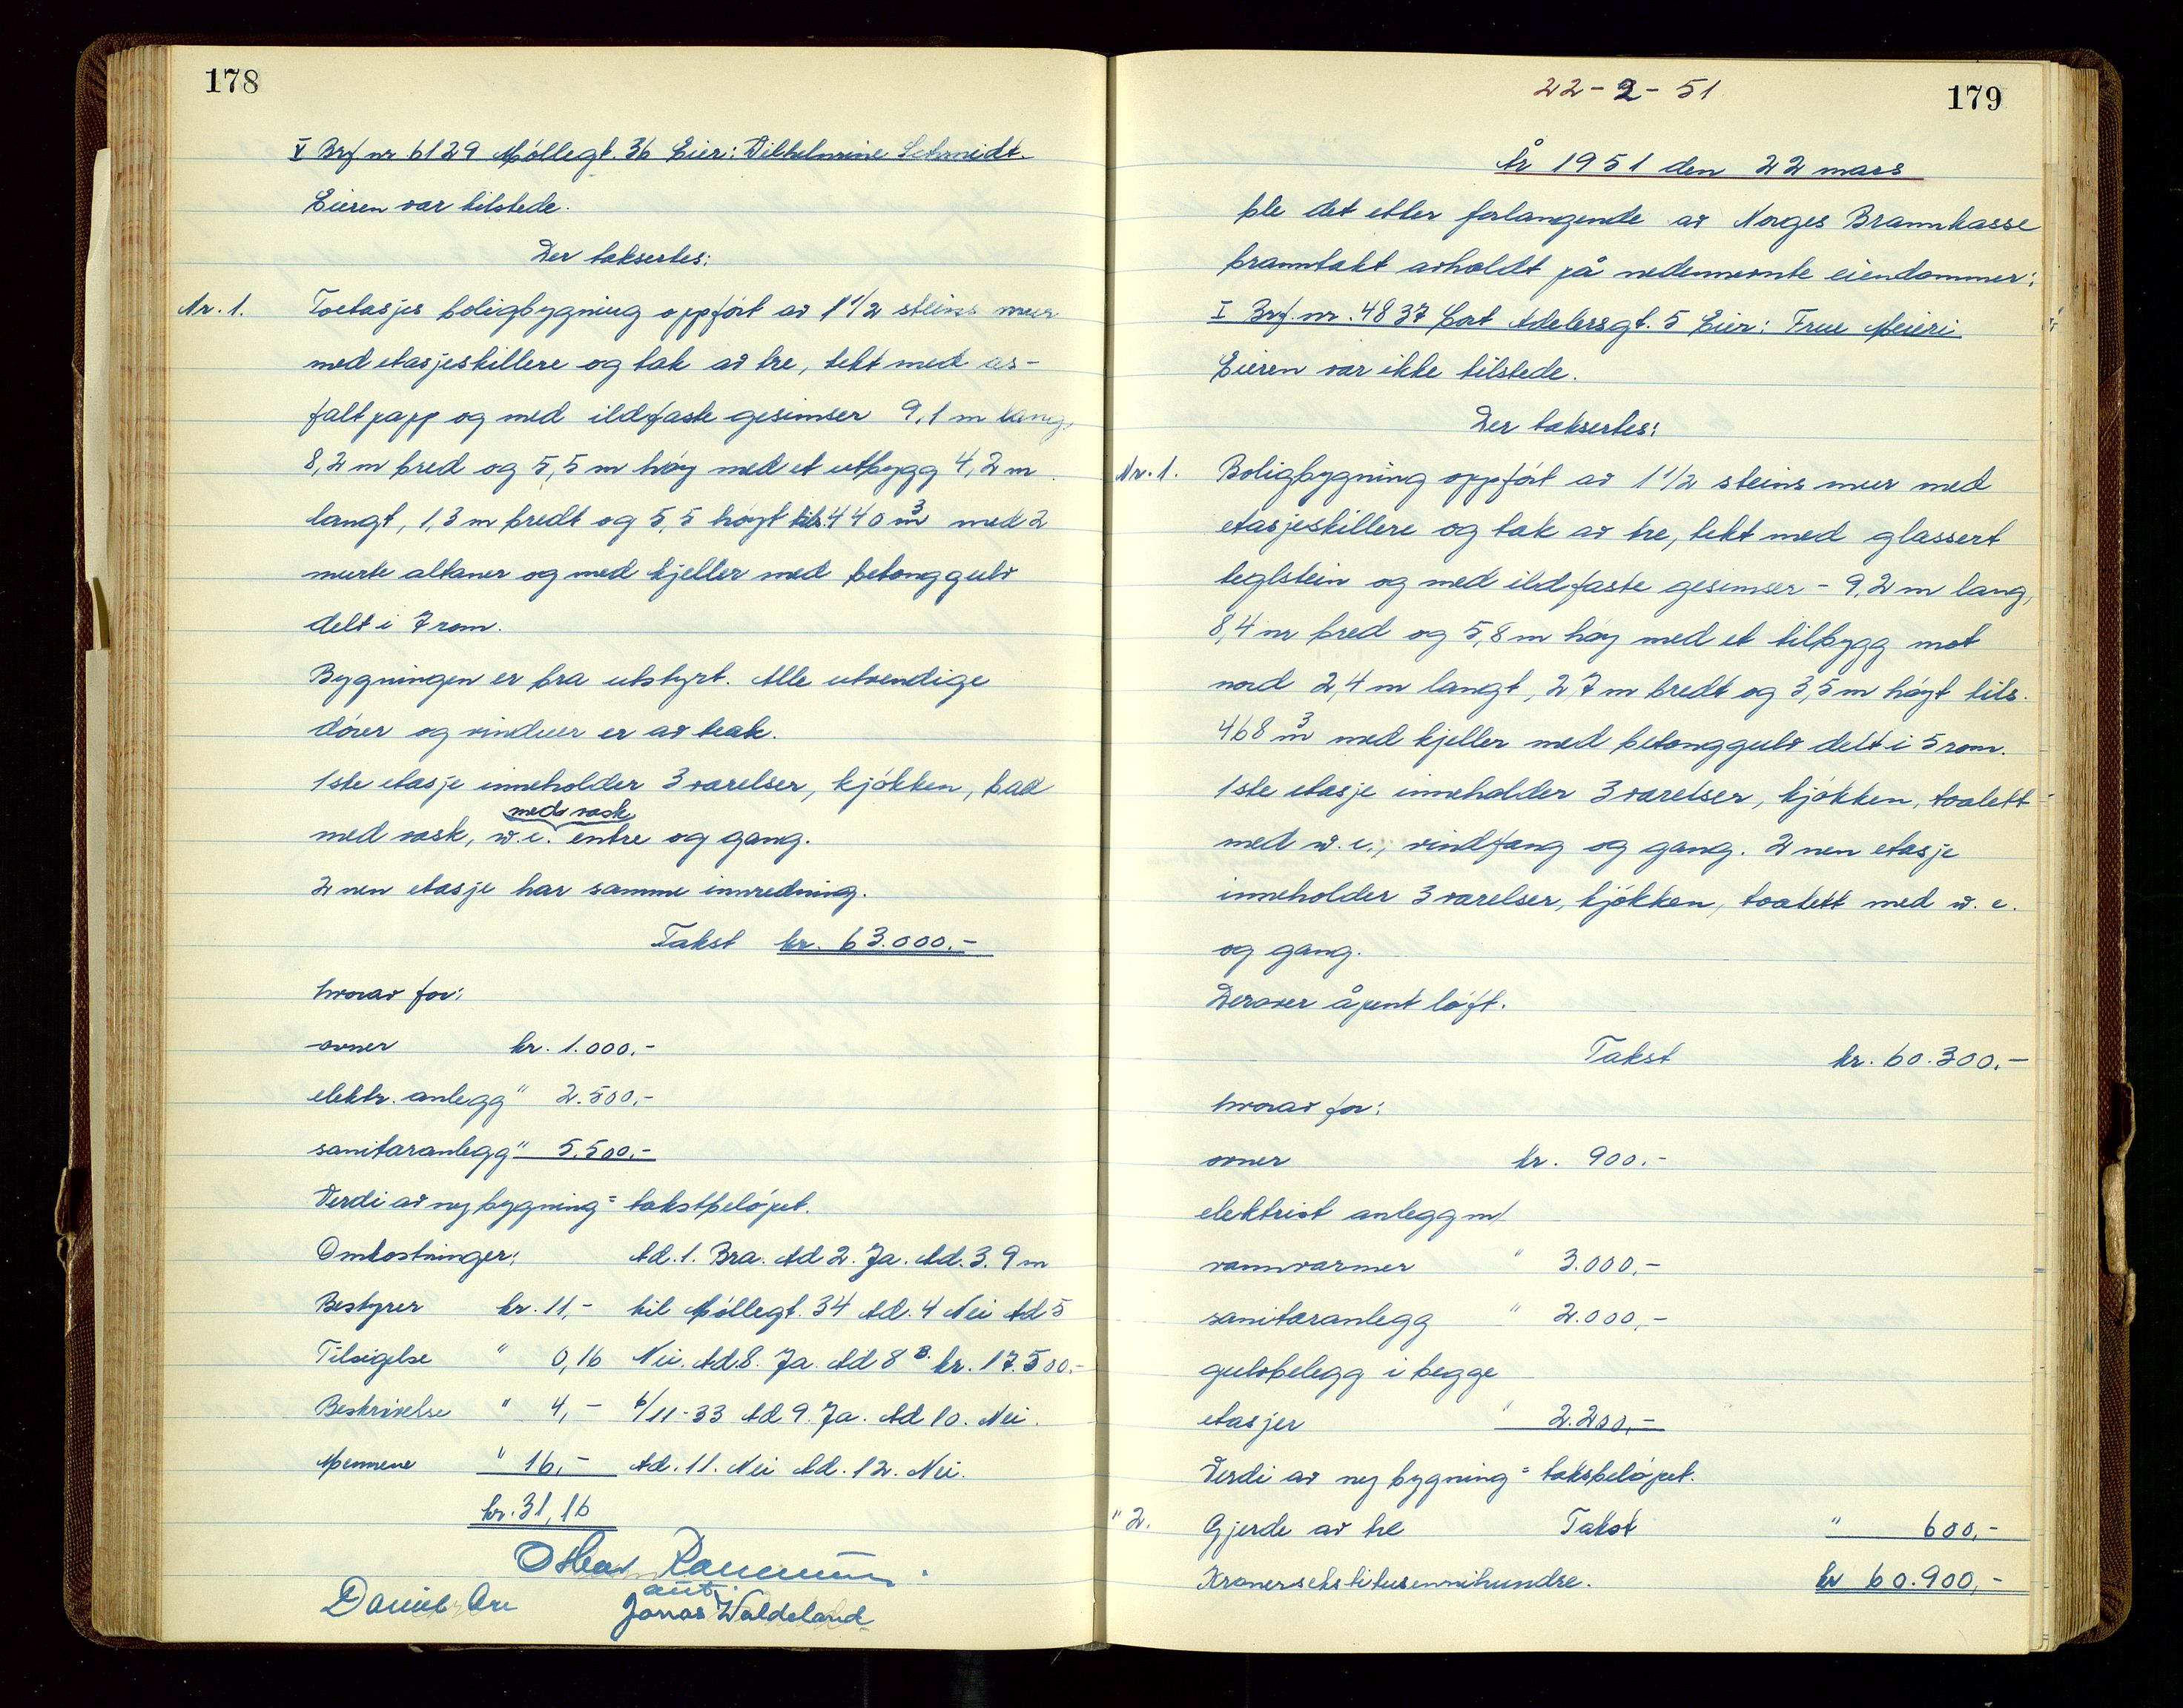 178
V Brf nr. 6129 Møllegt. 36 Eier: Vilhelmine Schmidt.
Eieren var tilstede.
Der taksertes:
Nr. 1. Toetasjes boligbygning oppført av 1 1/2 steins mur
med etasjeskillere og tak av tre, tekt med as-
faltpapp og med ildfaste gesimser 9,1 m lang,
8,2 m bred og 5,5 m høy med et utbygg 4,2 m
langt, 1,3 m bredt og 5,5 høyt tils. 440 m3 med 2
murte altaner og med kjeller med betonggulv
delt i 7 rom.
Bygningen er bra utstyrt. Alle utvendige
dører og vinduer er av teak.
1ste etasje inneholder 3 værelser, kjøkken, bad
med vask
med vask, w.c. entre og gang.
2nen etasje har samme innredning.
Takst kr. 63.000.-
hvorav for:
ovner kr. 1.000.-
elektr. anlegg " 2.500.-
sanitæranlegg " 5.500.-
Verdi av ny bygning = takstbeløpet.
Omkostninger: Ad. 1. Bra. Ad 2. Ja. Ad. 3. 9 m
Bestyrer kr. 11,- til Møllegt. 34 Ad. 4 Nei Ad 5
Tilsigelse " 0,16 Nei. Ad 8. Ja. Ad 8 B. kr. 17.500.-
Beskrivelse " 4,- 6/11-33 Ad 9. Ja. Ad 10. Nei.
Mennene " 16,- Ad. 11. Nei Ad. 12. Nei.
kr. 31,16
Jonas Waldeland
179
22-2-51
År 1951 den 22 mars
ble det etter forlangende av Norges Brannkasse
branntakt avholdt på nedennevnte eiendommer:
I Brf. nr. 4837 Cort Adelersgt. 5 Eier: Frue Meieri.
Eieren var ikke tilstede.
Der taksertes:
Nr. 1. Boligbygning oppført av 1 1/2 steins mur med
etasjeskillere og tak av tre, tekt med glassert
teglstein og med ildfaste gesimser - 9,2 m lang,
8,4 m bred og 5,8 m høy med et tilbygg mot
nord 2,4 m langt, 2,7 m bredt og 3,5 m høyt tils.
468 m3 med kjeller med betonggulv delt i 5 rom.
1ste etasje inneholder 3 værelser, kjøkken, toalett
med w.c., vindfang og gang. 2nen etasje
inneholder 3 værelser, kjøkken, toalett med w.c.
og gang.
Derover åpent loft.
Takst kr. 60.300.-
hvorav for:
ovner kr. 900.-
elektrist anlegg m/
vannvarmer " 3.000,-
sanitæranlegg " 2.000,-
gulvbelegg i begge
etasjer " 2.200,-
Verdi av ny bygning = taksbeløpet.
" 2. Gjerde av tre Takst " 600,-
Kronersekstitusennihundre. kr 60.900,-